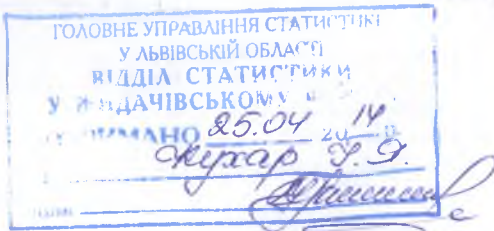 ГОЛОВНЕ УПРАВЛІННЯ СТАТИСТИКИ
У ЛЬВІВСЬКІЙ ОБЛАСТІ
ВІДДІЛ СТАТИСТИКИ
У ЖИДАЧІВСЬКОМУ
ОТРИМАНО 25.04 2014 р.
Кухар